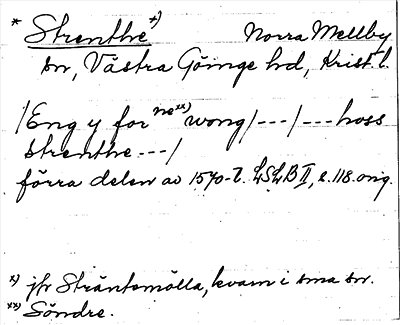 * Strenthe x) Norra Mellby
sn, Västra Göinge hd, Krist. l.
/Eng y for ne xx) wong/---/---hoss
strenthe ---/
förra delen av 1570-t. LSLB II, s. 118. orig.
x) jfr Sträntemölla, kvarn i sma sn.
xx) Söndre.